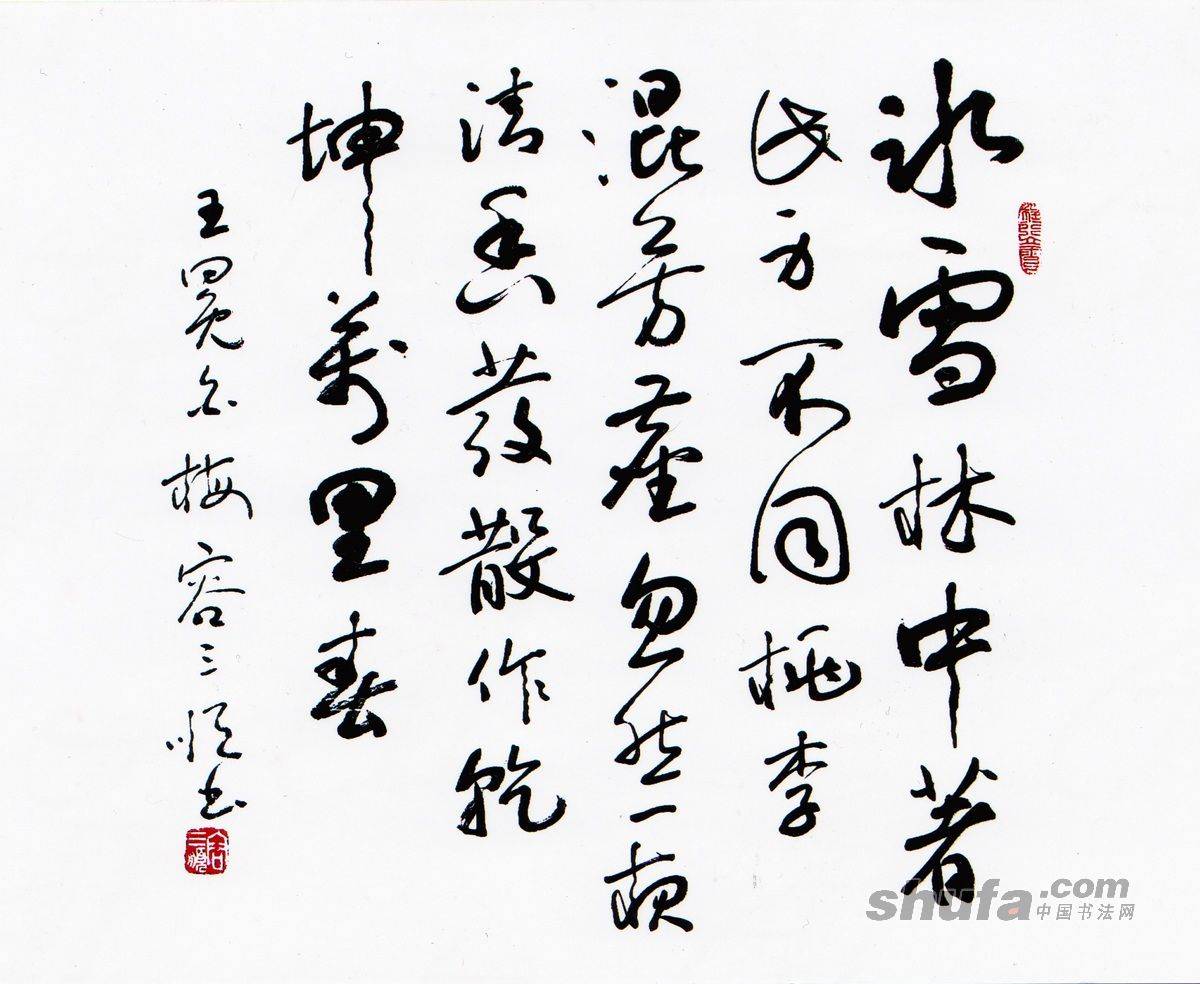 冰雪林中著
此身不同桃李
混芳塵忽然一夜
清香發散作乾
坤萬里春
王冕白梅 容三書
shufa.com
中国书法网